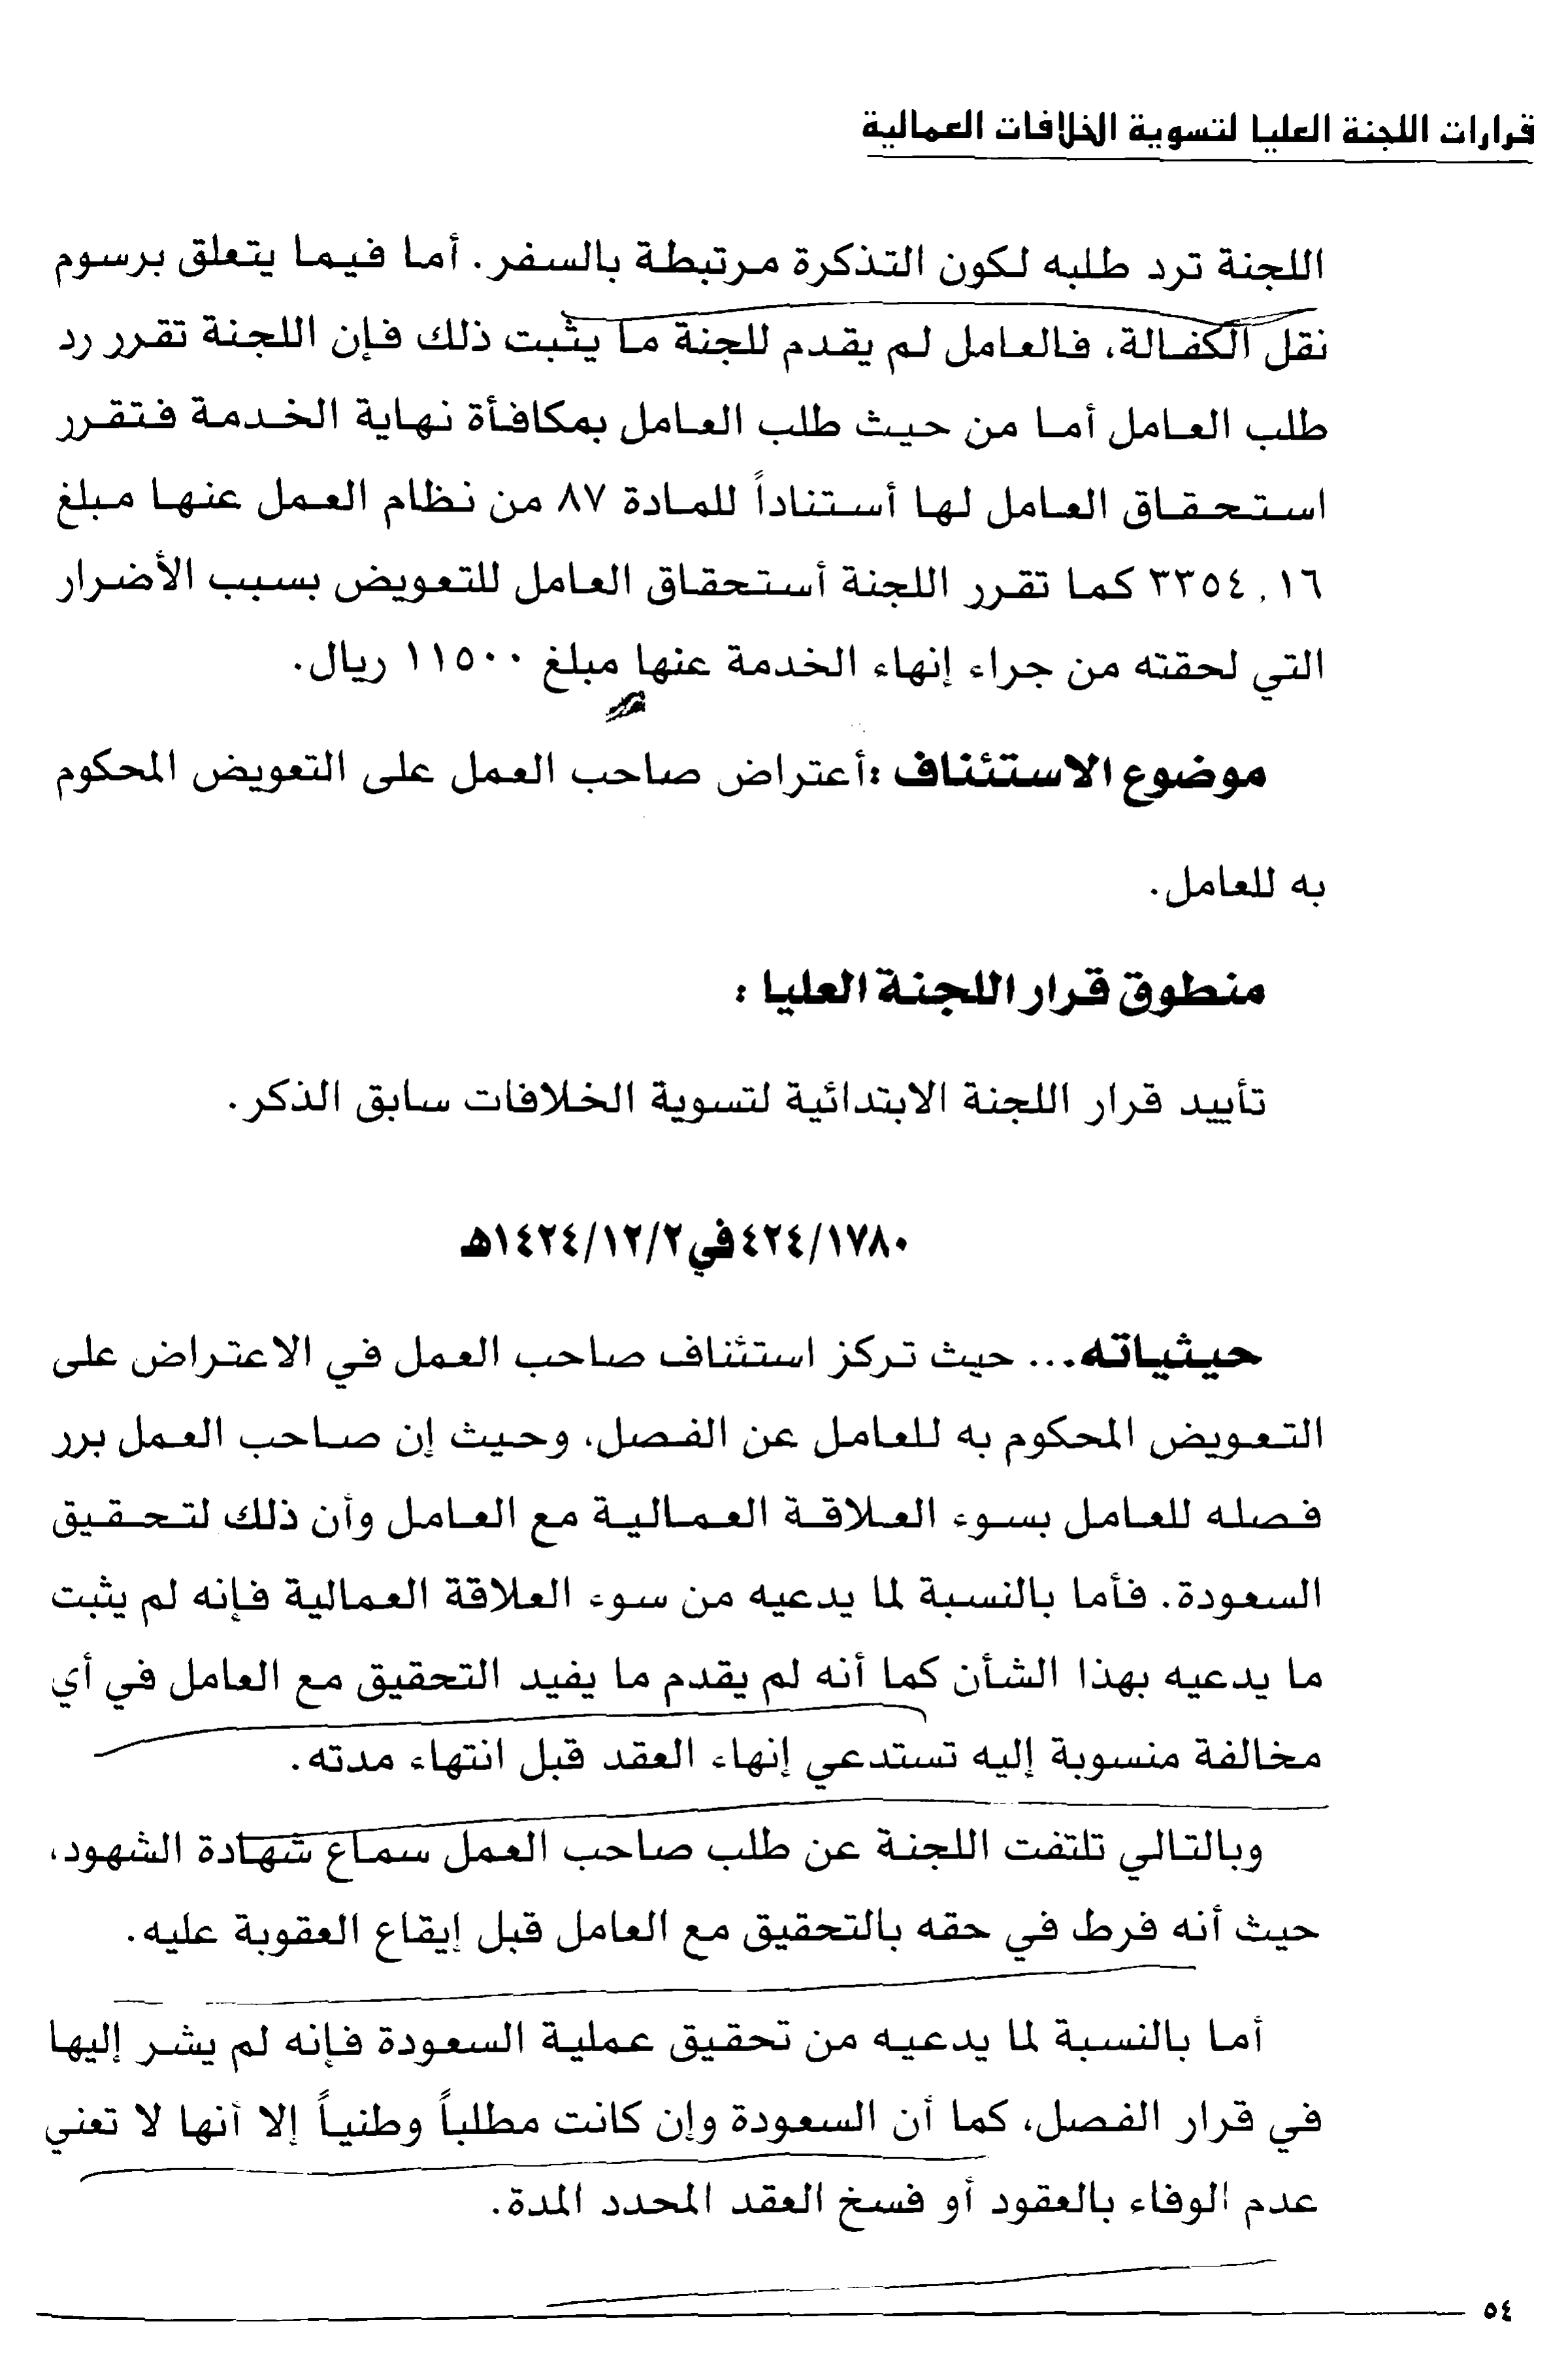 قرارات اللجنة العليا لتسوية الخلافات العمالية
اللجنة ترد طلبه لكون التذكرة مرتبطة بالسفر. أما فيما يتعلق برسوم
نقل الكفالة، فالعامل لم يقدم للجنة ما يثبت ذلك فإن اللجنة تقرر رد
طلب العامل أما من حيث طلب العامل بمكافأة نهاية الخدمة فتقرر
استحقاق العامل لها أستناداً للمادة ٨٧ من نظام العمل عنها مبلغ
٣٣٥٤,١٦ كما تقرر اللجنة أستحقاق العامل للتعويض بسبب الأضرار
التي لحقته من جراء إنهاء الخدمة عنها مبلغ ١١٥٠٠ ريال.
موضوع الاستئناف :أعتراض صاحب العمل على التعويض المحكوم
به للعامل.
منطوق قرار اللجنة العليا :
تأييد قرار اللجنة الابتدائية لتسوية الخلافات سابق الذكر.
٤٢٤/١٧٨٠ في ١٤٢٤/١٢/٢هـ
حيثياته... حيث تركز استئناف صاحب العمل في الاعتراض على
التعويض المحكوم به للعامل عن الفصل، وحيث إن صاحب العمل برر
فصله للعامل بسوء العلاقة العمالية مع العامل وأن ذلك لتحقيق
السعودة. فأما بالنسبة لما يدعيه من سوء العلاقة العمالية فإنه لم يثبت
ما يدعيه بهذا الشأن كما أنه لم يقدم ما يفيد التحقيق مع العامل في أي
مخالفة منسوبة إليه تستدعي إنهاء العقد قبل انتهاء مدته.
وبالتالي تلتفت اللجنة عن طلب صاحب العمل سماع شهادة الشهود،
حيث أنه فرط في حقه بالتحقيق مع العامل قبل إيقاع العقوبة عليه.
أما بالنسبة لما يدعيه من تحقيق عملية السعودة فإنه لم يشر إليها
في قرار الفصل، كما أن السعودة وإن كانت مطلباً وطنياً إلا أنها لا تعني
عدم الوفاء بالعقود أو فسخ العقد المحدد المدة.
٥٤